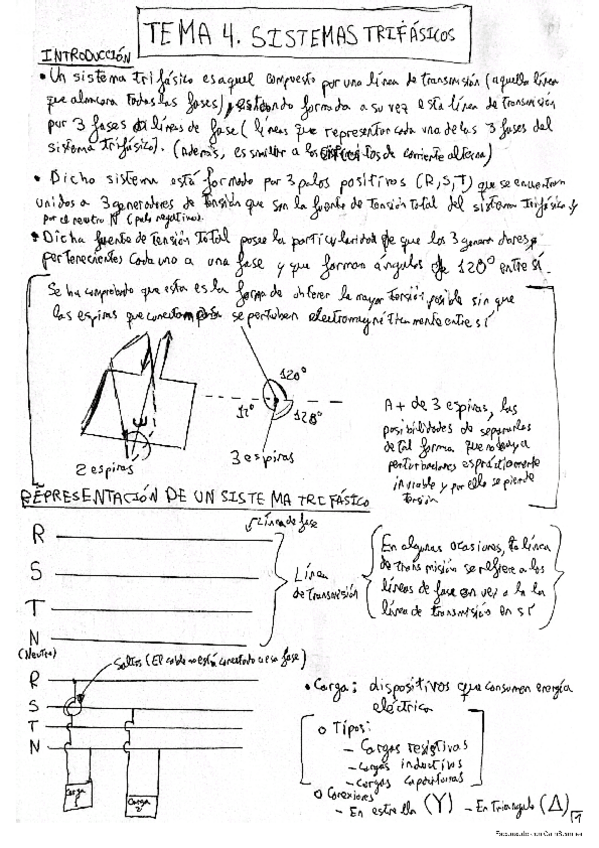 TEMA 4. SISTEMAS TRIFÁSICOS
INTRODUCCIÓN
• Un sistema trifásico es aquel compuesto por una línea de transmisión (aquella línea
que almacena todas las fases), estando formada a su vez esta línea de transmisión
por 3 fases o líneas de fase (líneas que representan cada una de las 3 fases del
sistema trifásico). (Además, es similar a los de corriente alterna)
• Dicho sistema está formado por 3 polos positivos (R,S,T) que se encuentran
unidos a 3 generadores de tensión que son la fuente de tensión total del sistema trifásico y
por el neutro N (polo negativo).
• Dicha fuente de tensión total posee la particularidad de que los 3 generadores
pertenecientes cada uno a una fase y que forman ángulos de 120° entre sí.
Se ha comprobado que esta es la forma de obtener la mayor tensión posible sin que
las espiras que se perturben electromagnéticamente entre sí
120°
120°
2 espiras
3 espiras
A + de 3 espiras, las
posibilidades de separarlas
de tal forma que no haya
perturbaciones es prácticamente
inviable y por ello se pierde
tensión
REPRESENTACIÓN DE UN SISTEMA TRIFÁSICO
Línea de fase
R
S
T
N
(Neutro)
Línea
de transmisión
En algunas ocasiones, la línea
de transmisión se refiere a las
líneas de fase en vez a la
línea de transmisión en sí
Saltos (El cable no está conectado a esa fase)
R
S
T
N
Carga
1
Carga
2
• Carga: dispositivos que consumen energía
eléctrica
o Tipos:
- Cargas resistivas
- Cargas inductivas
- Cargas capacitivas
o Conexiones
- En estrella (Y) - En Triángulo (Δ)
1
Escaneado con CamScanner